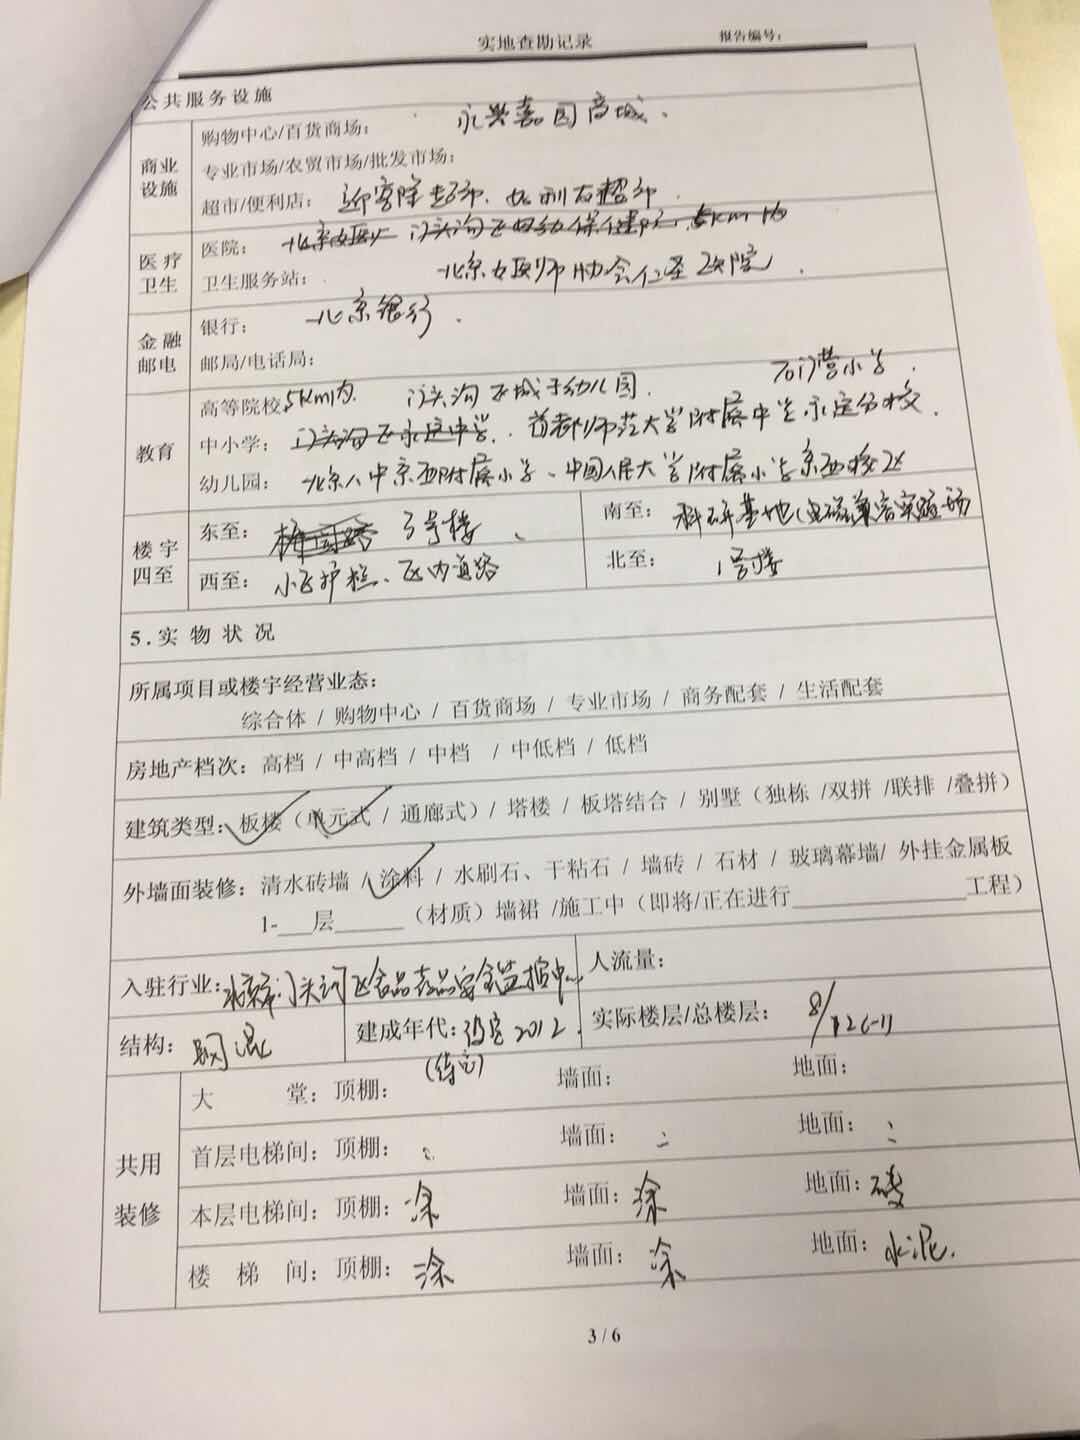 实地查勘记录 报告编号：
公共服务设施
商业设施
购物中心/百货商场： 永兴嘉园商城.
专业市场/农贸市场/批发市场：
超市/便利店： 迎客隆超市. 好利友超市.
医疗卫生
医院： 门头沟区妇幼保健院. 5km内
卫生服务站： 北京女医师协会仁圣医院.
金融邮电
银行： 北京银行.
邮局/电话局：
教育
高等院校 5km内. 门头沟区城子幼儿园. 石门营小学.
中小学： 门头沟区永定中学. 首都师范大学附属中学永定分校.
幼儿园： 北京八中京西附属小学、中国人民大学附属小学京西校区
楼宇四至
东至： 梅园路 3号楼、 南至： 科研基地(电磁兼容实验场
西至： 小区护栏、区内道路 北至： 1号楼
5.实物状况
所属项目或楼宇经营业态：
综合体 / 购物中心 / 百货商场 / 专业市场 / 商务配套 / 生活配套
房地产档次：高档 / 中高档 / 中档 / 中低档 / 低档
建筑类型：板楼（单元式 / 通廊式）/ 塔楼 / 板塔结合 / 别墅（独栋 /双拼 /联排 /叠拼）
外墙面装修：清水砖墙 / 涂料 / 水刷石、干粘石 / 墙砖 / 石材 / 玻璃幕墙/ 外挂金属板
1-___层______（材质）墙裙 /施工中（即将/正在进行_______________工程）
入驻行业：北京市门头沟区食品药品安全监控中心 人流量：
结构： 钢混 建成年代： 2012. 实际楼层/总楼层： 8/12(-1)
(待定)
共用装修
大堂：顶棚： 墙面： 地面：
首层电梯间：顶棚： 墙面： 地面：
本层电梯间：顶棚：涂 墙面：涂 地面：砖
楼梯间：顶棚：涂 墙面：涂 地面：水泥.
3 / 6